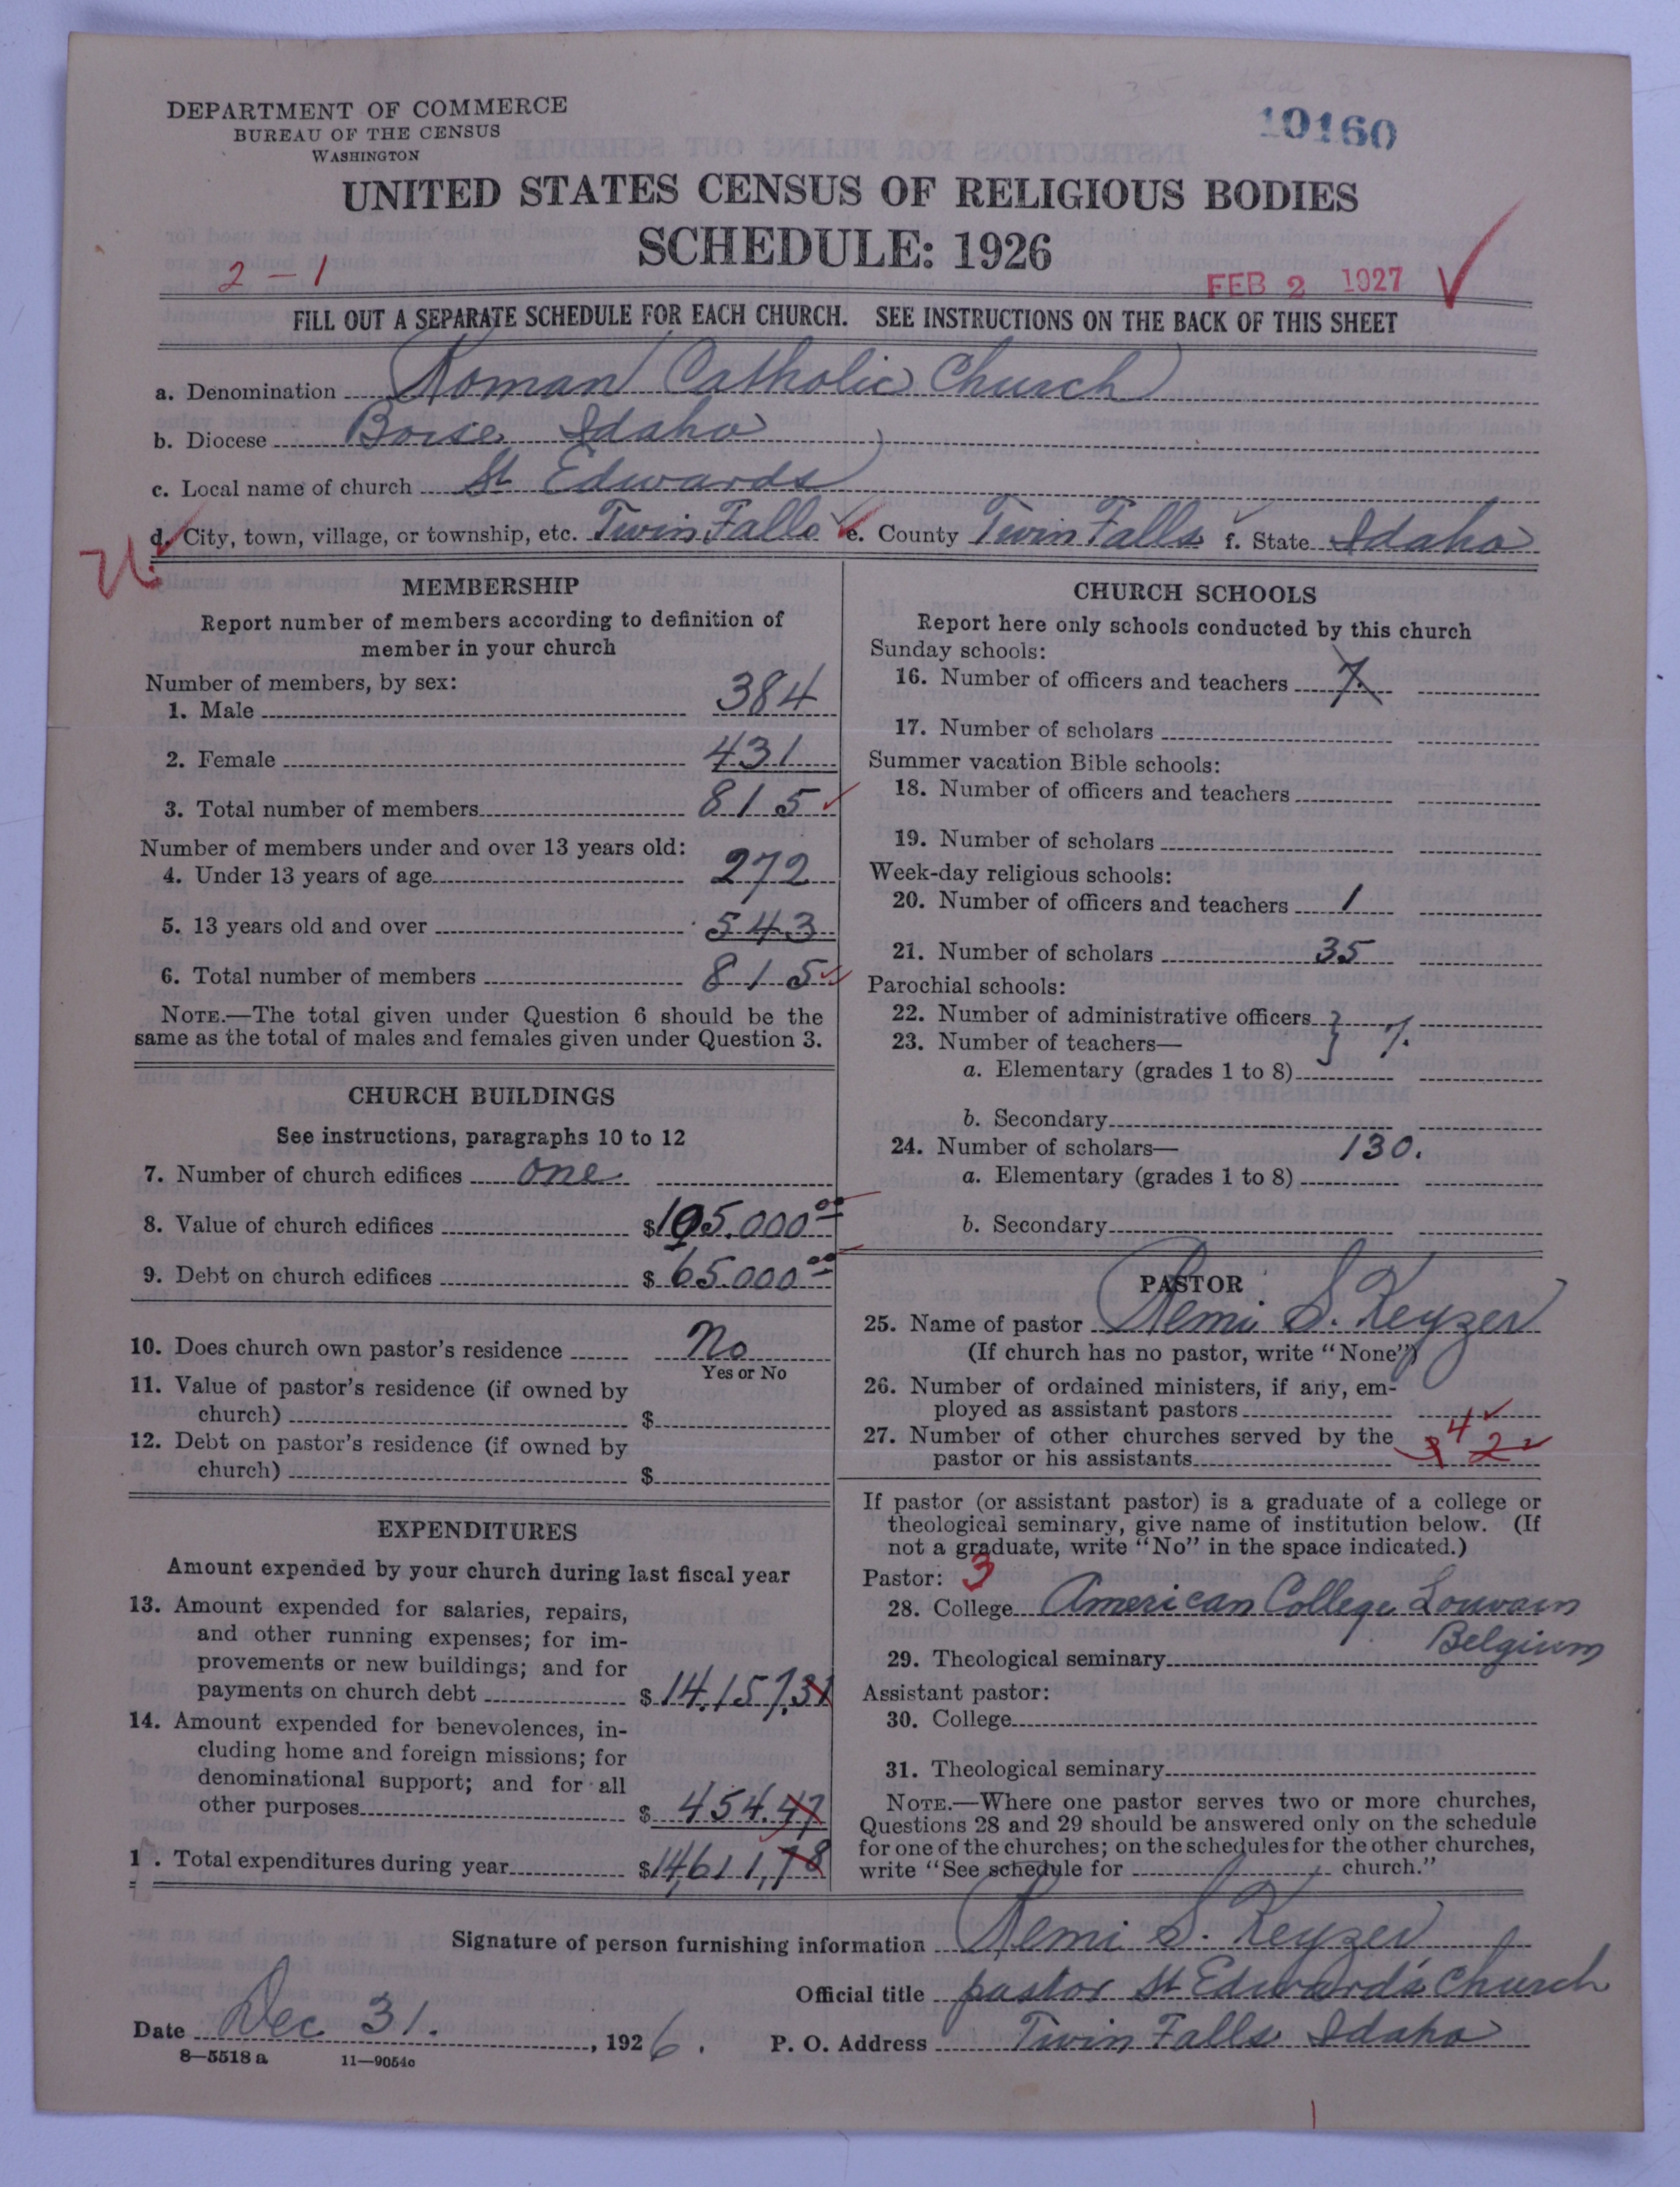 DEPARTMENT OF COMMERCE
BUREAU OF THE CENSUS
WASHINGTON
10160
UNITED STATES CENSUS OF RELIGIOUS BODIES
SCHEDULE: 1926
2 – 1
FEB 2 1927
FILL OUT A SEPARATE SCHEDULE FOR EACH CHURCH. SEE INSTRUCTIONS ON THE BACK OF THIS SHEET
a. Denomination Roman Catholic Church
b. Diocese Boise Idaho
c. Local name of church St Edwards
d. City, town, village, or township, etc. Twin Falls e. County Twin Falls f. State Idaho
MEMBERSHIP
Report number of members according to definition of
member in your church
Number of members, by sex:
1. Male 384
2. Female 431
3. Total number of members 815
Number of members under and over 13 years old:
4. Under 13 years of age 272
5. 13 years old and over 543
6. Total number of members 815
NOTE.—The total given under Question 6 should be the
same as the total of males and females given under Question 3.
CHURCH BUILDINGS
See instructions, paragraphs 10 to 12
7. Number of church edifices one
8. Value of church edifices $105.000 00
9. Debt on church edifices $ 65.000 00
10. Does church own pastor's residence No
Yes or No
11. Value of pastor's residence (if owned by
church) $
12. Debt on pastor's residence (if owned by
church) $
EXPENDITURES
Amount expended by your church during last fiscal year
13. Amount expended for salaries, repairs,
and other running expenses; for im-
provements or new buildings; and for
payments on church debt $ 14.157.31
14. Amount expended for benevolences, in-
cluding home and foreign missions; for
denominational support; and for all
other purposes $ 454.47
1 . Total expenditures during year $14,611,78
CHURCH SCHOOLS
Report here only schools conducted by this church
Sunday schools:
16. Number of officers and teachers 7.
17. Number of scholars
Summer vacation Bible schools:
18. Number of officers and teachers
19. Number of scholars
Week-day religious schools:
20. Number of officers and teachers 1
21. Number of scholars 35
Parochial schools:
22. Number of administrative officers } 7.
23. Number of teachers—
a. Elementary (grades 1 to 8)
b. Secondary
24. Number of scholars— 130.
a. Elementary (grades 1 to 8)
b. Secondary
PASTOR
25. Name of pastor Remi S. Keyzer
(If church has no pastor, write "None")
26. Number of ordained ministers, if any, em-
ployed as assistant pastors
27. Number of other churches served by the
pastor or his assistants 4 2
If pastor (or assistant pastor) is a graduate of a college or
theological seminary, give name of institution below. (If
not a graduate, write "No" in the space indicated.)
Pastor: 3
28. College American College Louvain
Belgium
29. Theological seminary
Assistant pastor:
30. College
31. Theological seminary
NOTE.—Where one pastor serves two or more churches,
Questions 28 and 29 should be answered only on the schedule
for one of the churches; on the schedules for the other churches,
write "See schedule for church."
Signature of person furnishing information Remi S. Keyzer
Official title pastor St Edward's Church
Date Dec 31. , 1926. P. O. Address Twin Falls Idaho
8—5518 a 11—9054c